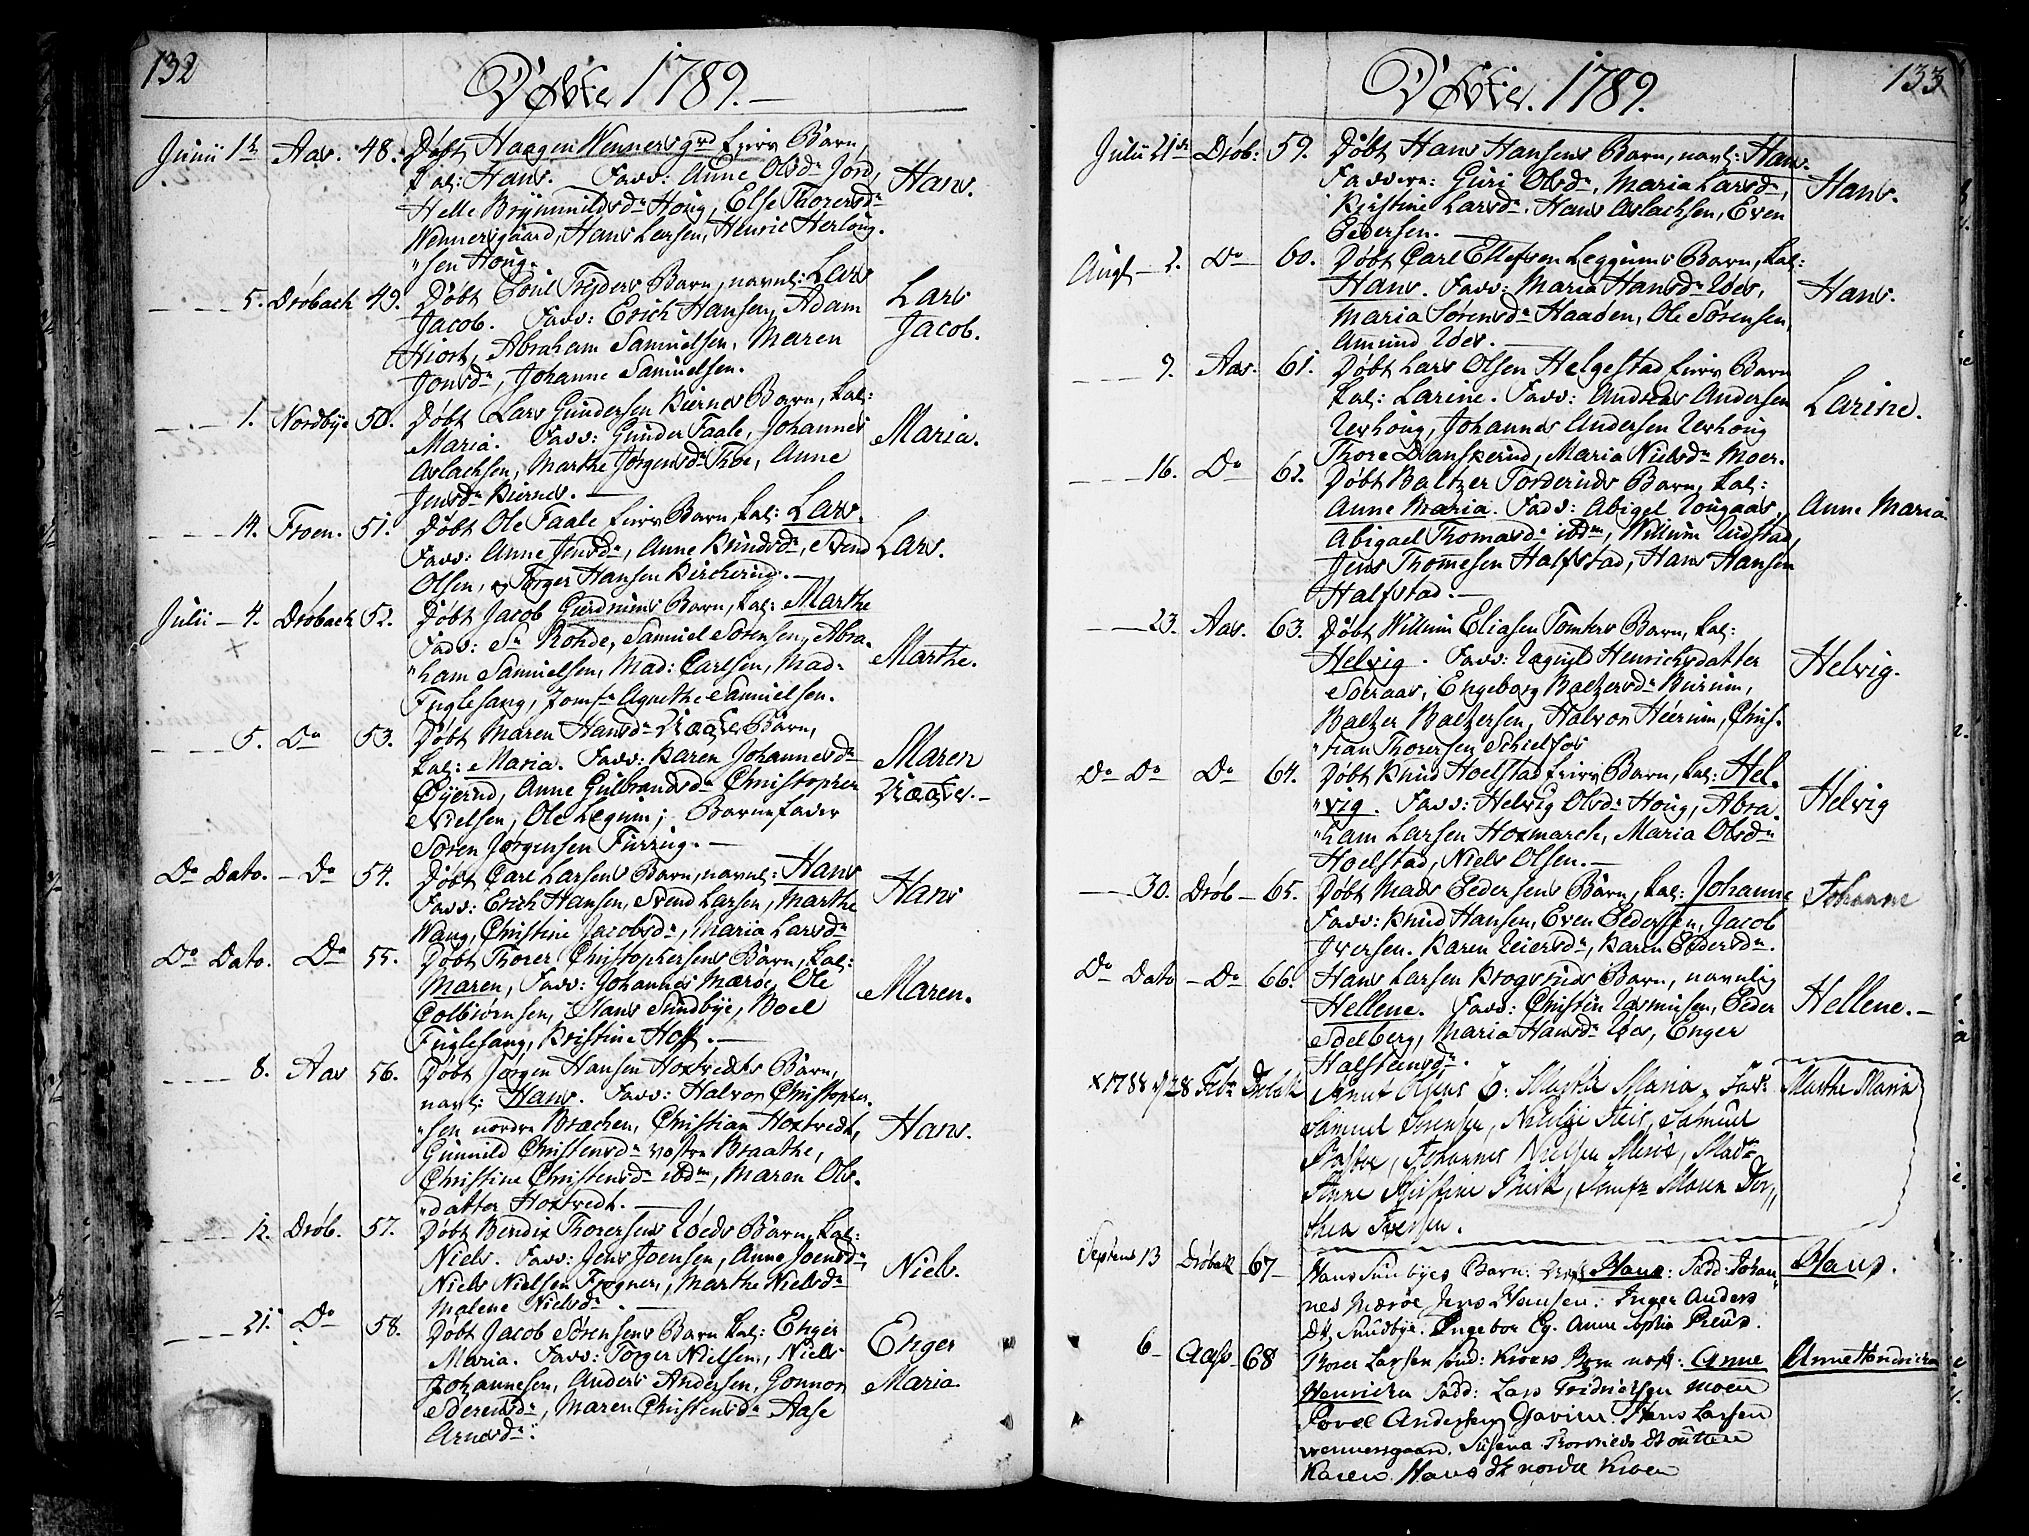 132
Døbte 1789.
Junii 1ste Aas. 48. Døbt Haagen Wennersgrd hives Barn,
kal: Hans. Fadd: Anne Olsdr Jord, Hans.
Helle Brynnildsdr Houg, Else Thorersdr
Wennersgaard, Hans Larsen, Henric Herloug-
"sen Houg.
5. Drøbach 49. Døbt Poul Tryders Barn, navnl: Lars
Jacob. Fadd: Erich Hansen, Adam Lars Jacob.
Hiort, Abraham Samuelsen, Maren
Jonsdr, Johanne Samuelsen.
1. Nordbye 50. Døbt Lars Gundersen Kiernes Barn, kal:
Maria. Fadd: Gunder Faale, Johannes Maria.
Aslachsen, Marthe Jørgensdr Thoe, Anne
Jensdr Kiernes.
14. Froen. 51. Døbt Ole Faale hives Barn, kal: Lars.
Fadd: Anne Jensdr, Anne Knudsdr, Svend Lars.
Olsen, og Torger Hansen Kircherud.
Julii 4. Drøbach 52. Døbt Jacob Gierdrums Barn, kal: Marthe
Fadd: Sr Rohde, Samuel Sørensen, Abra-
"ham Samuelsen, Mad: Carlsen, Mad: Marthe.
Fuglesang, Jomfr Agnethe Samuelsen.
5. Do 53. Døbt Maren Hansdr Uægte Barn,
kal: Maria. Fadd: Karen Johannesdr Maren
Øyerud, Anne Gulbrandsdr Christopher Uægte.
Nielsen, Ole Legum; Barnefader
Søren Jørgensen Furrug.
Do Dato. Do 54. Døbt Carl Larsens Barn, navnl: Hans
Fadd: Erich Hansen, Svend Larsen, Marthe Hans
Wang, Christine Jacobsdr, Maria Larsdr
Do Dato. Do 55. Døbt Thorer Christophersens Barn, kal:
Maren, Fadd: Johannes Mærøe, Ole Maren.
Colbiørnsen, Hans Sundbye, Boel
Fuglesang, Kristine Hoff.
8. Aas 56. Døbt Jørgen Hansen Hoxvedts Barn,
navl: Hans. Fadd: Halvor Christopher-
"sen nordre Brachen, Christian Hoxvedt, Hans.
Gunnild Christensdr vestre Braathe,
Christine Christensdr ibdm, Maren Ols-
"datter Hoxvedt.
12. Drøb. 57. Døbt Bendix Thorersens Røeds Barn, kal:
Niels. Fadd: Jens Joensen, Anne Joensdr, Niels.
Niels Nielsen Frogner, Marthe Nielsdr
Malene Nielsdr.
21. Do 58. Døbt Jacob Sørensens Barn kal: Enger
Maria. Fadd: Torger Nielsen, Niels Enger
Johannesen, Anders Andersen, Gonnor Maria.
Sørensdr, Maren Christensdr Aase
Arnesdr.
133
Døbte. 1789.
Julii 21de Drøb: 59. Døbt Hans Hansens Barn, navl: Hans.
Faddere: Guri Olsdr, Maria Larsdr, Hans.
Kirstine Larsdr, Hans Aslachsen, Even
Pedersen.
Augt 2. Do 60. Døbt Carl Ellefsen Leggums Barn, kal:
Hans. Fadd: Maria Hansdr Røes, Hans.
Maria Sørensdr Haaden, Ole Sørensen,
Amund Røes.
9. Aas. 61. Døbt Lars Olsen Helgestad hives Barn
kal: Larine. Fadd: Andreas Andersen Larine.
Revhoug, Johannes Andersen Revhoug
Thore Danskerud, Maria Nielsdr Moer.
16. Do 62. Døbt Baltzer Torderuds Barn, kal:
Anne Maria. Fadd: Abigel Rougaas, Anne Maria
Abigael Thomasdr ibdm, Willum Rustad,
Jens Thommesen Halfstad, Hans Hansen
Halfstad.
23. Aas. 63. Døbt Willum Eliasen Tomters Barn, kal:
Helvig. Fadd: Ragnild Henrichsdatter Helvig.
Solraas, Engeborg Baltzersdr Burum,
Baltzer Baltzersen, Halvor Heerum, Chris-
"tian Thorersen Schielfos
Do Do Do 64. Døbt Knud Hoelstad hives Barn, kal: Hel-
"vig. Fadd: Helvig Olsdr Houg, Abra- Helvig
"ham Larsen Hoxmarch, Maria Olsdr
Hoelstad, Niels Olsen.
30. Drøb 65. Døbt Mads Pedersens Barn, kal: Johanne Johanne
Fadd: Knud Hansen, Even Pedersen, Jacob
Iversen. Karen Reiersdr, Karen Pedersdr.
Do Dato Do 66. Hans Larsen Krogsruds Barn, navnlig
Hellene. Fadd: Christin Rasmusen, Peder Hellene.
Edelberg, Maria Hansdr Røes, Enger
Halstensdr.
x 1788 d 28 Febr Drøbak Knut Olsens B: Marthe Maria. Fad: Marthe Maria
Samuel Sørensen, Samuel
Johannes Nielsen Merøe, Mad:
Anne Kirstine Jomfr Maren Dor,,
thea Iversen.
Septem 13 Drøbak 67 Hans Sundbyes Barn: Hans: Fadd: Johan- Hans.
nes Mærøe, Jens Hansen: Inger Anders
Dt, Sundbye. Ingebor Anne Sophia
6 Aass 68 Thorer Larsen sønd: Kroers Barn: Anne Anne Hendricka
Henricka Fadd: Lars Fridrichsen Moen
Povel Andersen Hans Larsen
wennersgaard. Susena
Karen Hans Dt nordre Kroer